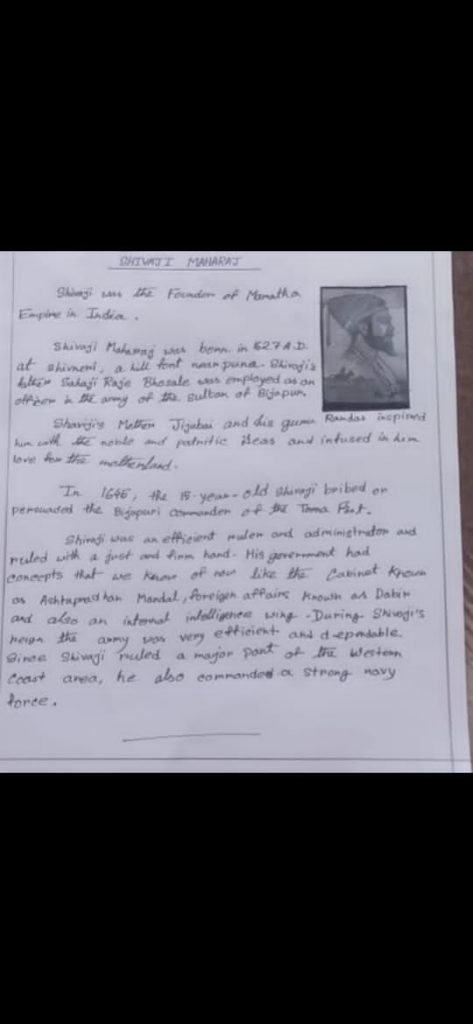 SHIVAJI MAHARAJ
Shivaji was the Founder of Maratha
Empire in India.
Shivaji Maharaj was born in 1627 A.D.
at shivneri, a hill fort near puna. Shivaji's
father Sahaji Raje Bhosale was employed as an
officer in the army of the Sultan of Bijapur.
Shavaji's Mother Jijabai and his guru Ramdas inspired
him with the noble and patriotic ideas and infused in him
love for the motherland.
In 1645, the 15-year-old Shivaji bribed or
persuaded the Bijapuri Commander of the Torna Fort.
Shivaji was an efficient ruler and administrator and
ruled with a just and firm hand. His government had
concepts that we know of now like the Cabinet known
as Ashtapradhan Mandal, foreign affairs known as Dabir
and also an internal intelligence wing. During Shivaji's
reign the army was very efficient and dependable.
Since Shivaji ruled a major part of the Western
Coast area, he also commanded a strong navy
force.